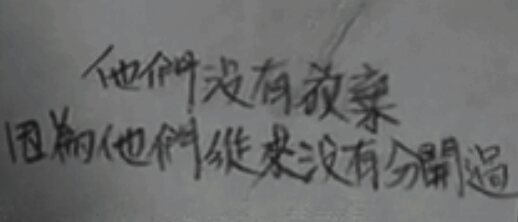 他們沒有放棄
因為他們從來沒有分開過